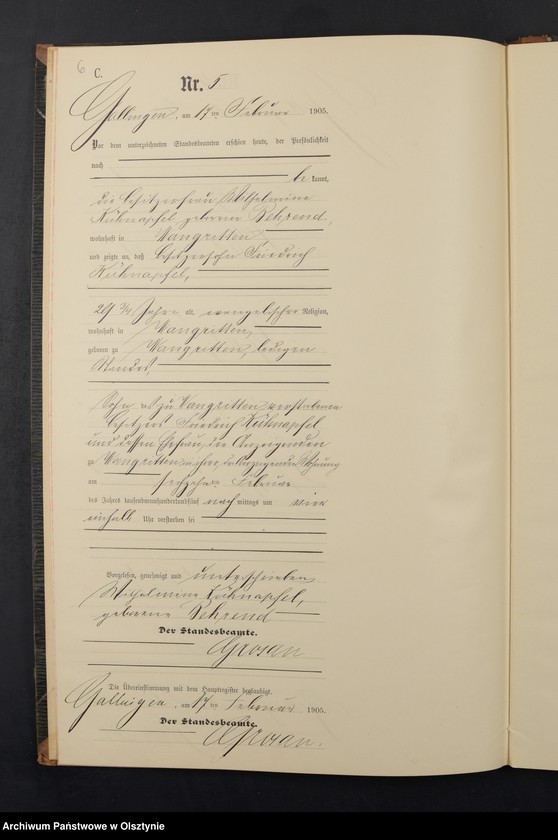 6
C.
Nr. 5
Gallingen, am 17ten Februar 1905.
Vor dem unterzeichneten Standesbeamten erschien heute, der Persönlichkeit
nach
be kannt,
die Besitzerfrau Wilhelmine
Kühnapfel geborene Behrend,
wohnhaft in Wangritten,
und zeigte an, daß Besitzersohn Friedrich
Kühnapfel,
29 3/4 Jahre a evangelischer Religion,
wohnhaft in Wangritten,
geboren zu Wangritten, ledigen
Standes,
Sohn des zu Wangritten verstorbenen
Besitzers Friedrich Kühnapfel
und dessen Ehefrau, der Anzeigenden
zu Wangritten in ihrer, der Anzeigenden Wohnung
am sechzehnten Februar
des Jahres tausendneunhundertundfünf nach mittags um
einhalb Uhr verstorben sei
Vorgelesen, genehmigt und unterschrieben
Wilhelmine Kühnapfel,
geborene Behrend
Der Standesbeamte.
Grosan
Die Übereinstimmung mit dem Hauptregister beglaubigt.
Gallingen, am 17ten Februar 1905.
Der Standesbeamte.
Grosan.
Archiwum Państwowe w Olsztynie